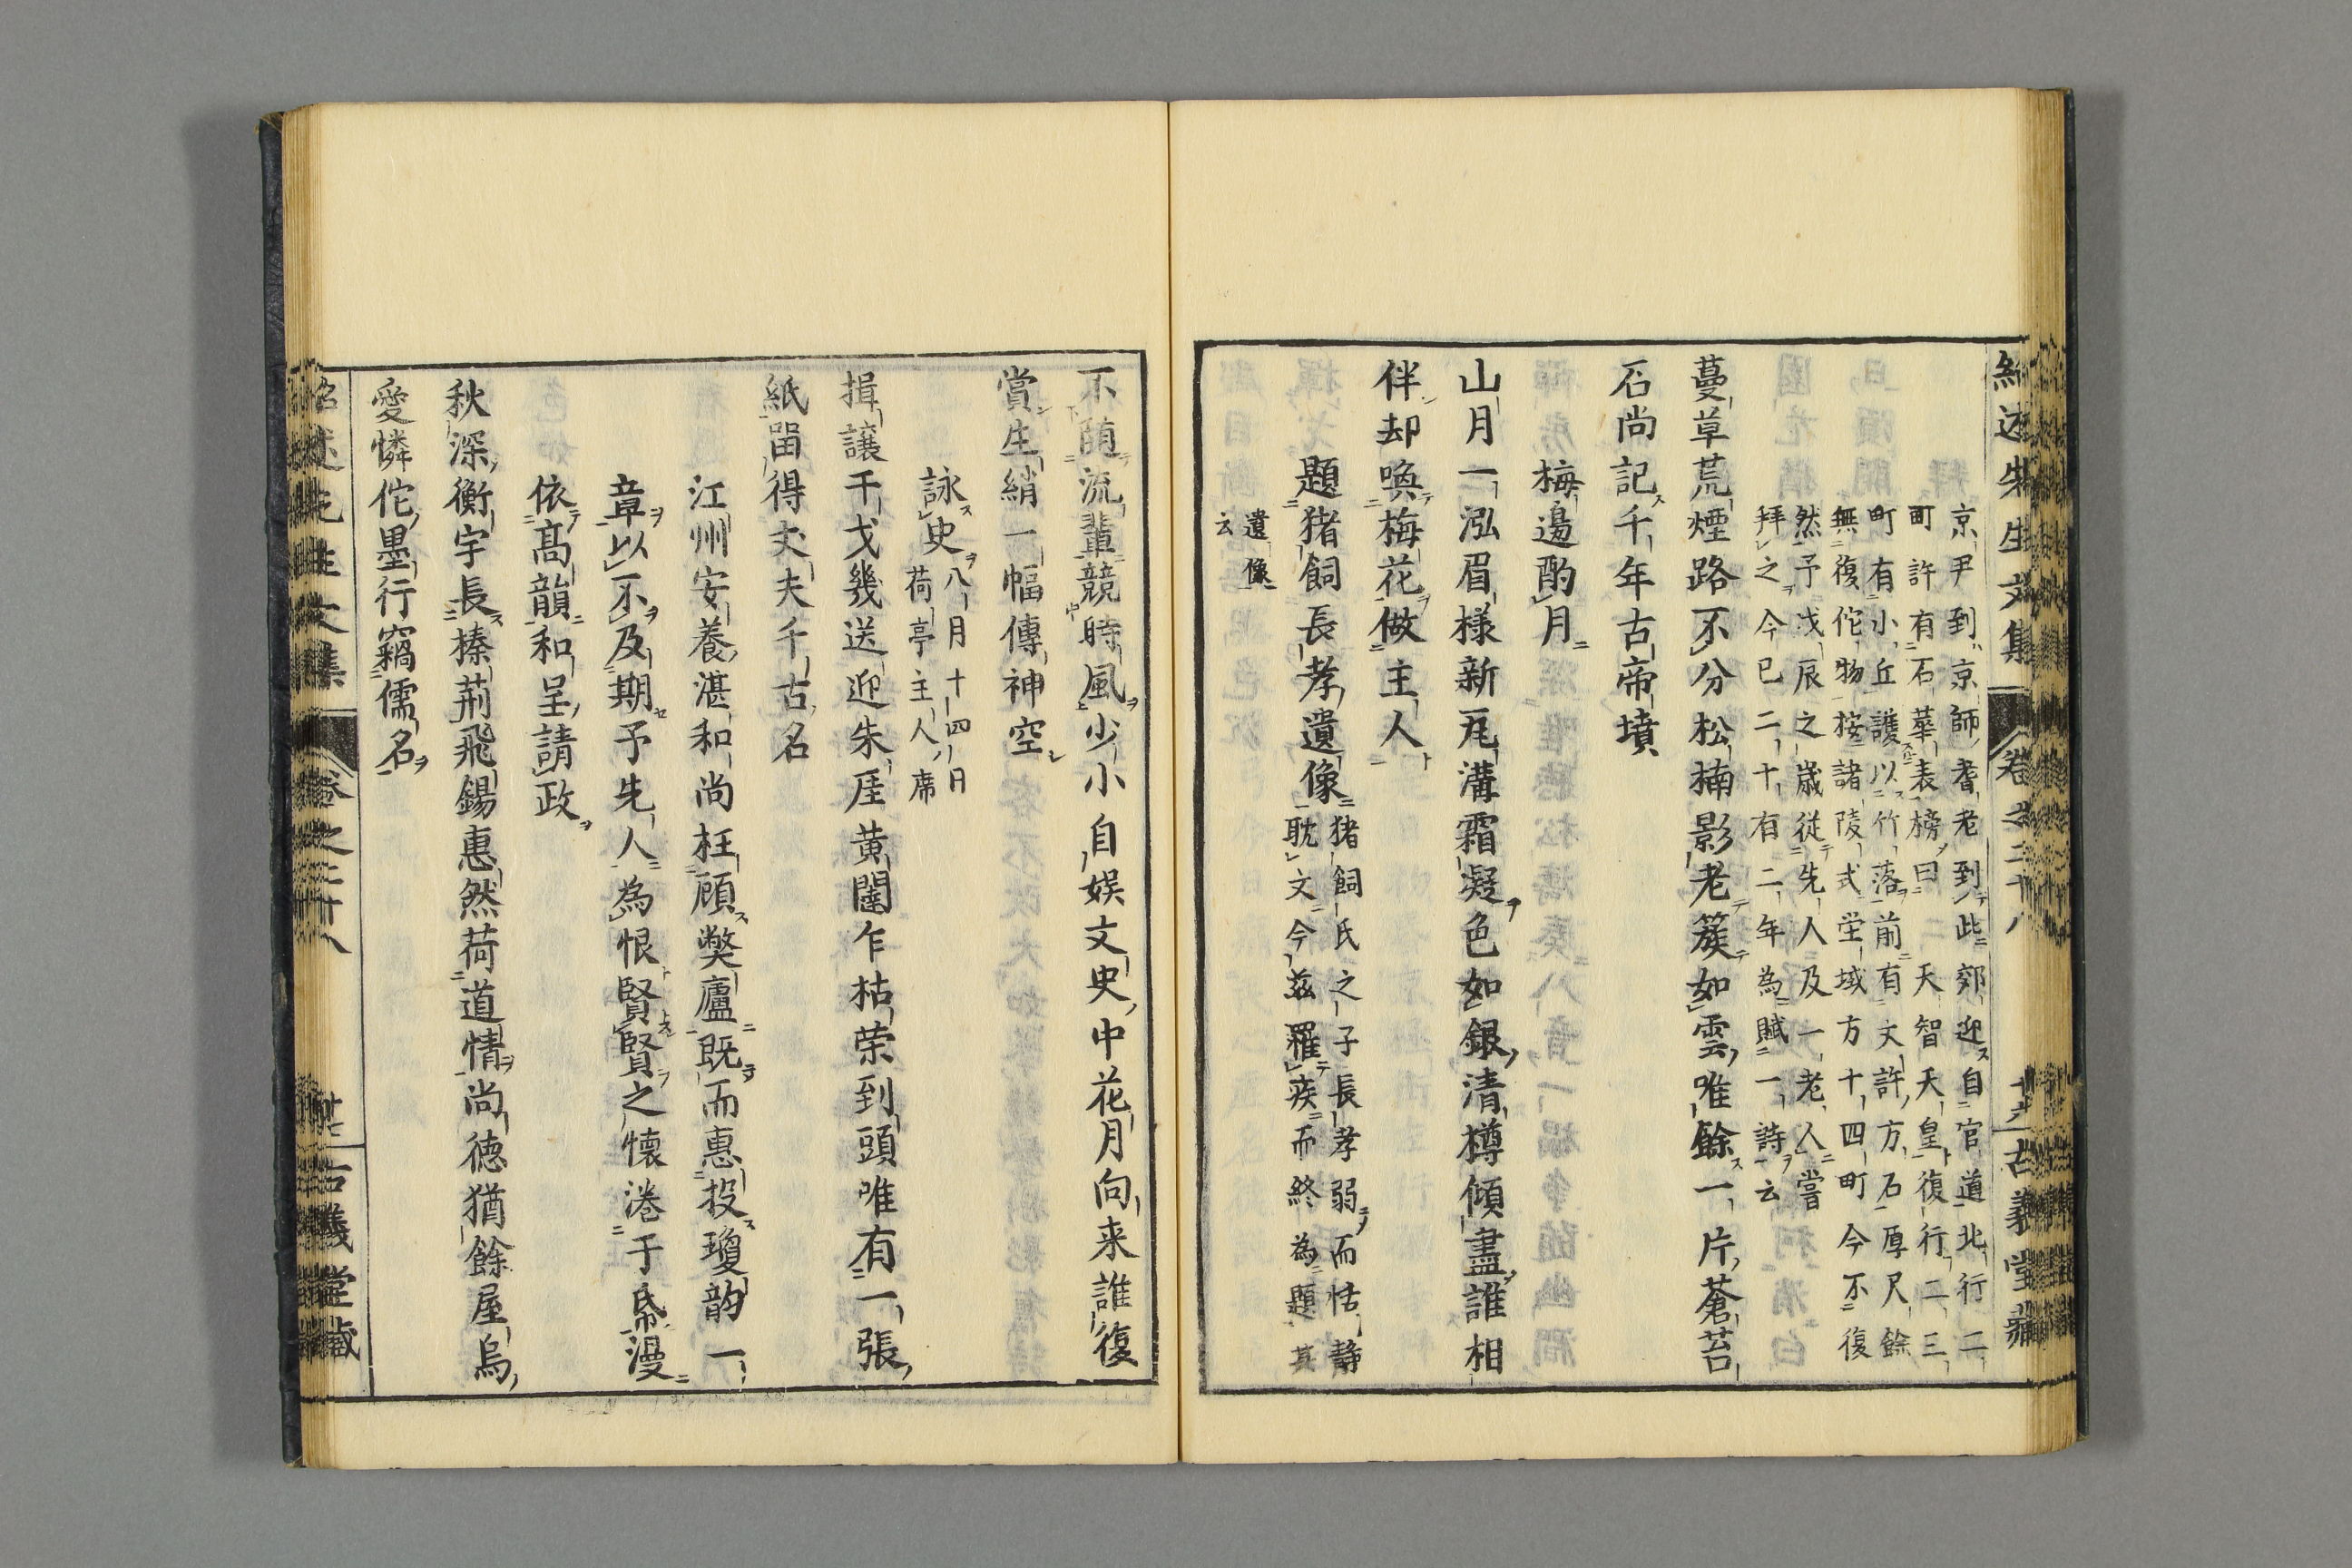 紹述先生文集 卷之二十八 古義堂藏
京尹到京師耆老到此郊迎自官道北行二
町許有石華表榜曰天智天皇復行二三
町有小丘護以竹落前有文許方石厚尺餘
無復佗物按諸陵式塋域方十四町今不復
然予戊辰之歳從先人及一老人嘗
拜之今已二十有二年為賦一詩云
蔓草荒煙路不分松楠影老簇如雲唯餘一片蒼苔
石尚記千年古帝墳
梅邊酌月
山月一泓眉様新瓦溝霜凝色如銀清樽傾盡誰相
伴却喚梅花做主人
題猪飼長孝遺像
猪飼氏之子長孝弱而恬静
耽文今茲羅疾而終為題其
遺像
云
不随流輩競時風少小自娯文史中花月向来誰復
賞生綃一幅傳神空
詠史
八月十四日
荷亭主人席
揖讓干戈幾送迎朱厓黄闥乍枯荣到頭唯有一張
紙留得丈夫千古名
江州安養湛和尚枉顧獘廬既而惠投瓊韵一
章以不及期予先人為恨賢賢之懷港于帋漫
依髙韻和呈請政
秋深衡宇長榛荊飛錫惠然荷道情尚徳猶餘屋烏
愛憐佗墨行竊儒名
紹述先生文集 卷之二十八 古義堂藏